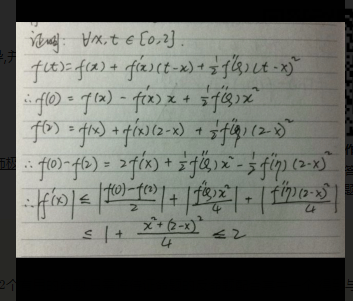 证明: ∀x,t∈[0,2].
f(t)=f(x)+f'(x)(t-x)+½f''(ξ)(t-x)²
∴f(0)=f(x)-f'(x)x+½f''(ξ)x²
f(2)=f(x)+f'(x)(2-x)+½f''(η)(2-x)²
∴f(0)-f(2)=2f'(x)+½f''(ξ)x²-½f''(η)(2-x)²
∴|f'(x)|≤|f(0)-f(2)/2|+|f''(ξ)x²/4|+|f''(η)(2-x)²/4|
≤1+x²+(2-x)²/4≤2